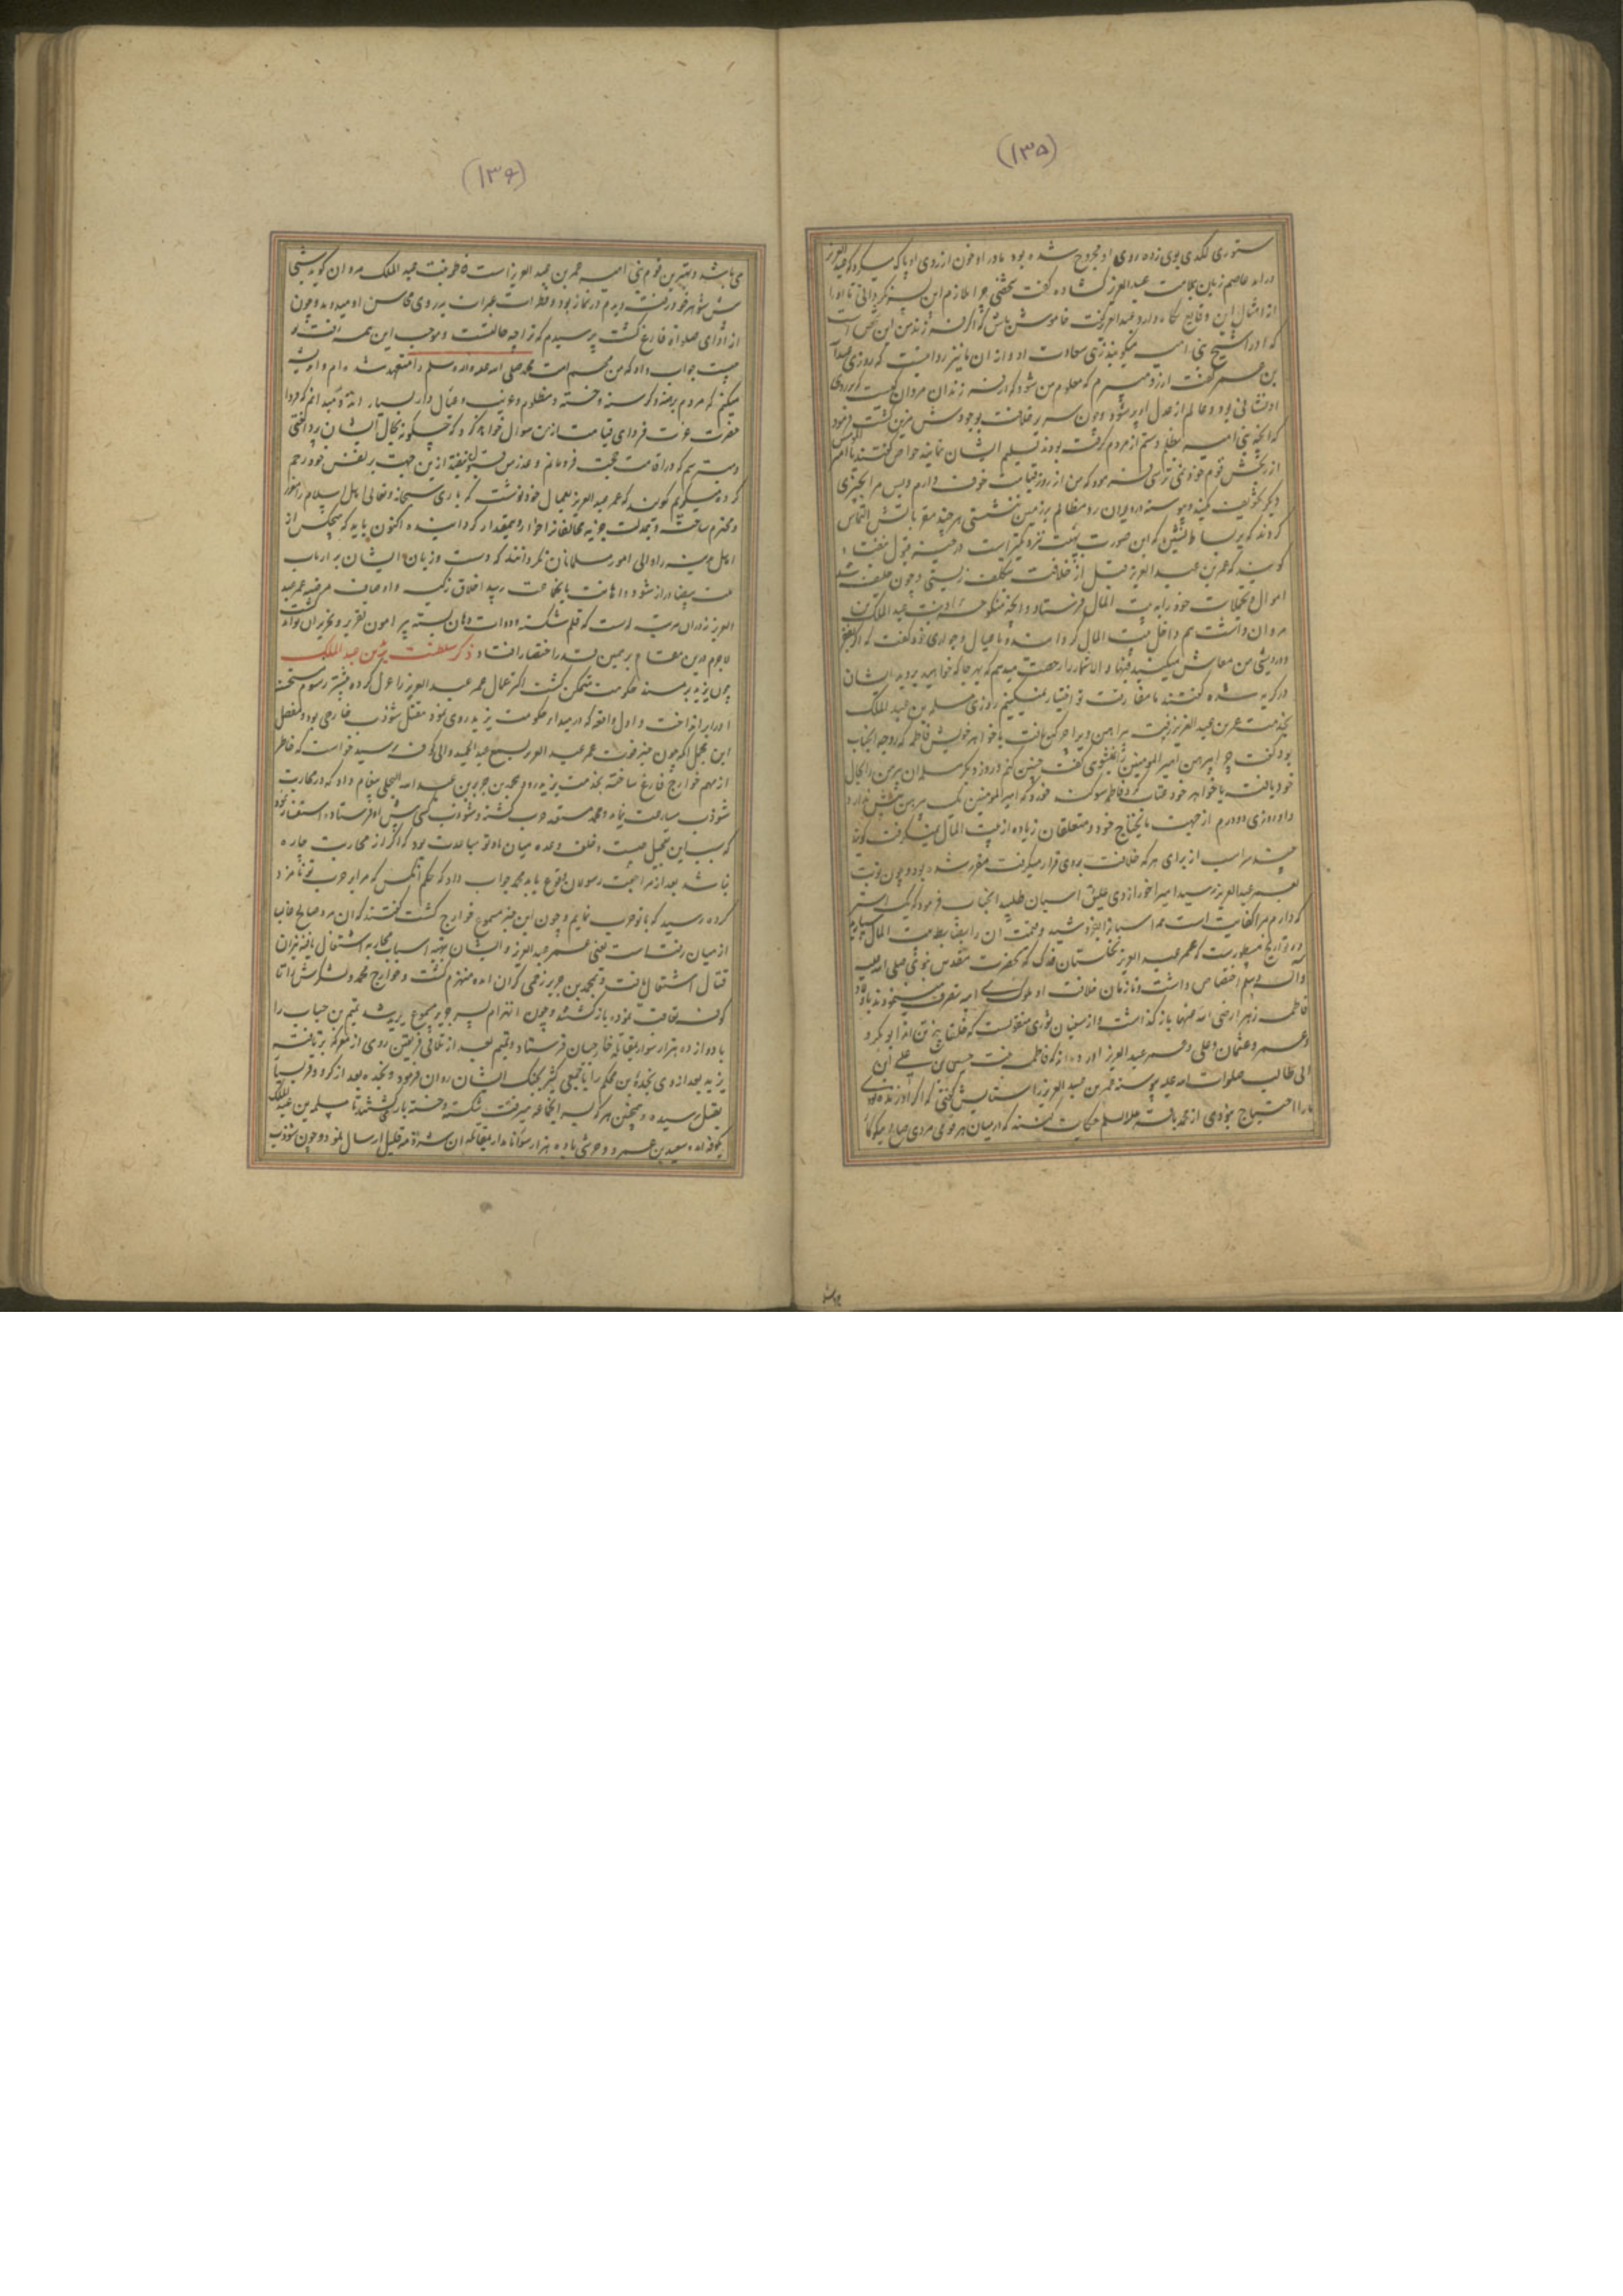 (۱۳۵)
ستوری لکدی بوی زده روی او مجروح شده بود مادر او خون از روی او پاک میکرد که عبدالعزیز
درامد عاصم زبان بملامت عبدالعزیز کشاده کفت
از امثال این وقایع نکاه دارد عبدالعزیز کفت خاموش باش که اگر فرزند من این شجّ است
که او را اشجّ بنی امیه میکویند زهی سعادت او و از ان ما نیز روایتست که روزی عبدالله
بن عمر کفت ارزو میبرم که معلوم من شود که از فرزندان مروان کیست که بر روی
او نشانی بود و عالم از عدل او پر شود و چون سریر خلافت بوجودش مزین کشت فرمود
که انچه بنی امیه بظلم و ستم از مردم کرفته بودند تسلیم ایشان نمایند خواص کفتند یا امیر المومنین
از رنجش قوم خود نمی ترسی فرمود که من از روز قیامت خوف دارم و بس مرا بچیزی
دیکر تخویف مکنید و پیوسته در دیوان رد مظالم بر زمین نشستی هر چند مقربانش التماس
کردند که بر بساط نشین که این صورت بهیبت نزدیکتر است درجه قبول نیفتاد
کویند که عمر بن عبد العزیز قبل از خلافت بتکلف زیستی و چون خلیفه شد
اموال و تجملات خود را به بیت المال فرستاد و انچه منکوحه او بنت عبد الملک بن
مروان داشت هم داخل بیت المال کردانید و با عیال و جواری خود کفت که اگر بفقر
و درویشی من معاش میکنید فبها و الا شما را رخصت میدهم که بهر جا که خواهید بروید ایشان
در کریه شده کفتند ما مفارقت تو اختیار نمیکنیم روزی مسلمه بن عبد الملک
بخدمت عمر بن عبد العزیز رفت پیراهن ویرا چرکن یافت با خواهر خویش فاطمه که زوجه انجناب
بود کفت چرا پیراهن امیر المومنین را نمیشوی کفت چنین کنم و روز دیکر مسلمه ان پیرهن را بحال
خود یافت با خواهر خود عتاب کرد فاطمه سوکند خورد که امیر المومنین یک پیرهن بیش ندارد
و او روزی دو درم از جهت مایحتاج خود و متعلقان زیاده از بیت المال نمیکرفت کویند
چند سر اسب از برای هر که خلافت بروی قرار میکرفت مقرر شده بود و چون نوبت
بعمر عبد العزیز رسید امیر اخور از وی علیق اسبان طلبید انجناب فرمود که یک استر
که دارم مرا کفایت است همه اسبانرا بفروشید و قیمت ان را بضابط بیت المال سپارید
در تواریخ مسطور است که عمر عبد العزیز نخلستان فدک که بحضرت مقدس نبوی صلی الله علیه
و آله و سلم اختصاص داشت و تا زمان خلافت او ملوک بنی امیه تصرف مینمودند باولاد
فاطمه زهرا رضی الله عنها باز کذاشت و از سفیان ثوری منقولست که خلفا پنج تن اند ابو بکر و
عمر و عثمان و علی و عمر عبد العزیز اورده اند که فاطمه بنت حسین بن علی بن
ابی طالب صلوات الله علیه پیوسته عمر بن عبد العزیز را ستایش کفتی که اگر او زنده بودی
مارا احتیاج نبودی از محمد باقر علیه السلام حکایت کنند که از میان هر قومی مردی صالح نیکوکار
(۱۳۶)
می باشد و بهترین قوم بنی امیه عمر بن عبد العزیز است فاطمه بنت عبد الملک مروان کوید شبی
پیش شوهر خود رفتم و دیدم در نماز بود و قطرات عبرات بر روی محاسن او میدوید و چون
از ادای صلواة فارغ کشت پرسیدم که ترا چه حالتست و موجب این همه رقت تو
چیست جواب داد که من مهم امت محمد صلی الله علیه و اله و سلم را متعهد شده ام و اندیشه
میکنم که مردم برهنه و کرسنه و خسته و مظلوم و غریب و عیال دار بسیار اند و میدانم که فردا
حضرت عزت فردای قیامت از من سوال خواهد کرد که چکونه بحال ایشان پرداختی
و میترسم که در اقامت حجت فرو مانم و عذر من قبول نیفتد ازین جهت بر نفس خود رحم
کرده میکریم کویند که عمر عبد العزیز بعمال خود نوشت که باری سبحانه و تعالی اهل اسلام را معزز
و محترم ساخت و بمذلت جزیه مخالفانرا خوار و بیمقدار کردانیده اکنون باید که هیچکس از
اهل ذمه را والی امور مسلمانان نکردانند که دست و زبان ایشان بر ارباب
ملت بیضا دراز شود و اهانت بانجماعت رسد اخلاق زکیه و اوصاف مرضیه عمر عبد
العزیز نه در ان مرتبه است که قلم شکسته و دوات دهان بسته پیرامون تقریر و تحریر ان تواند کشت
لاجرم درین مقام بر همین قدر اختصار افتاد ذکر سلطنت یزید بن عبد الملک
چون یزید بر مسند حکومت متمکن کشت اکثر عمال عمر عبد العزیز را عزل کرده بیشتر رسوم مستحسنه
او را بر انداخت و اول واقعه که در مبداء حکومت یزید روی نمود مقتل شوذب خارجی بود و مفصل
این مجمل انکه چون خبر فوت عمر عبد العزیز بسمع عبد الحمید والی کوفه رسید خواست که خاطر
از مهم خوارج فارغ ساخته بخدمت یزید رود محمد بن جریر بن عبد الله البجلی پیغام داد که در محاربه
شوذب مسارعت نماید و محمد مستعد حرب کشته و شوذب کس پیش او فرستاد و استفسار نمود
که سبب این تعجیل چیست و خلف وعده میان ما و تو سعادت بود که اگر از محاربت چاره
نباشد بعد از مراجعت رسولان بوقوع باید محمد جواب داد که حکم انکس که مرا بر حرب تو نامزد
کرده رسید که با تو حرب نمایم و چون این خبر مسموع خوارج کشت کفتند که ان مرد صالح غالبا
از میان رفته است یعنی عمر عبد العزیز و ایشان بتهیه اسباب محاربه اشتغال یافته نیران
قتال اشتعال یافت و محمد بن جریر زخمی کران امده منهزم کشت و خوارج محمد و لشکرش را تا
کوفه تعاقب نموده باز کشتند و چون انهزام پسر جریر مسموع یزید شد تمیم بن حباب را
با دو از ده هزار سوار بمقابله خارجیان فرستاد و تمیم بعد از تلاقی فریقین روی از معرکه بر تافت
یزید بعد از وی نجدة بن حکم را با جمعی کثیر بجنک ایشان روان فرمود و نجده بعد از کر و فر بسیار
بقتل رسیده و همچنین هر که بسر انجماعه میرفت شکسته و خسته باز میکشت تا مسلمه بن عبد الملک
بکوفه امده سعید بن عمرو حرشی با ده هزار سوار نامدار بمقاتله ان شرذمه قلیل ارسال نمود و چون شوذب